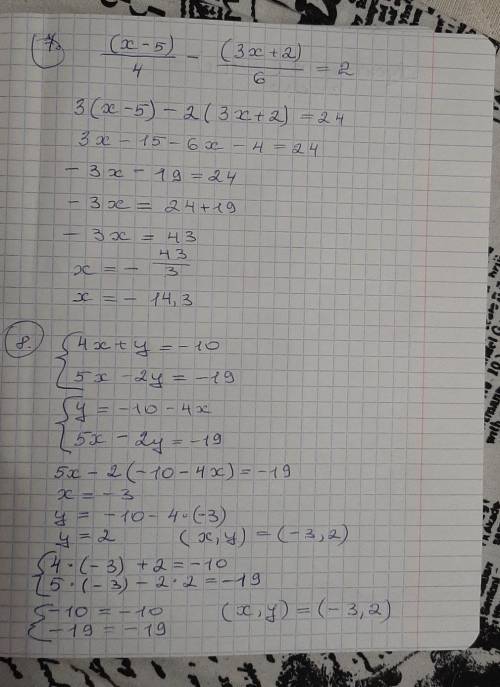 7. (x-5)/4 - (3x+2)/6 = 2
3(x-5)-2(3x+2)=24
3x-15-6x-4=24
-3x-19=24
-3x=24+19
-3x=43
x=-43/3
x=-14,3
8. {4x+y=-10
5x-2y=-19
{y=-10-4x
5x-2y=-19
5x-2(-10-4x)=-19
x=-3
y=-10-4·(-3)
y=2 (x,y)=(-3,2)
{4·(-3)+2=-10
5·(-3)-2·2=-19
{-10=-10 (x,y)=(-3,2)
-19=-19